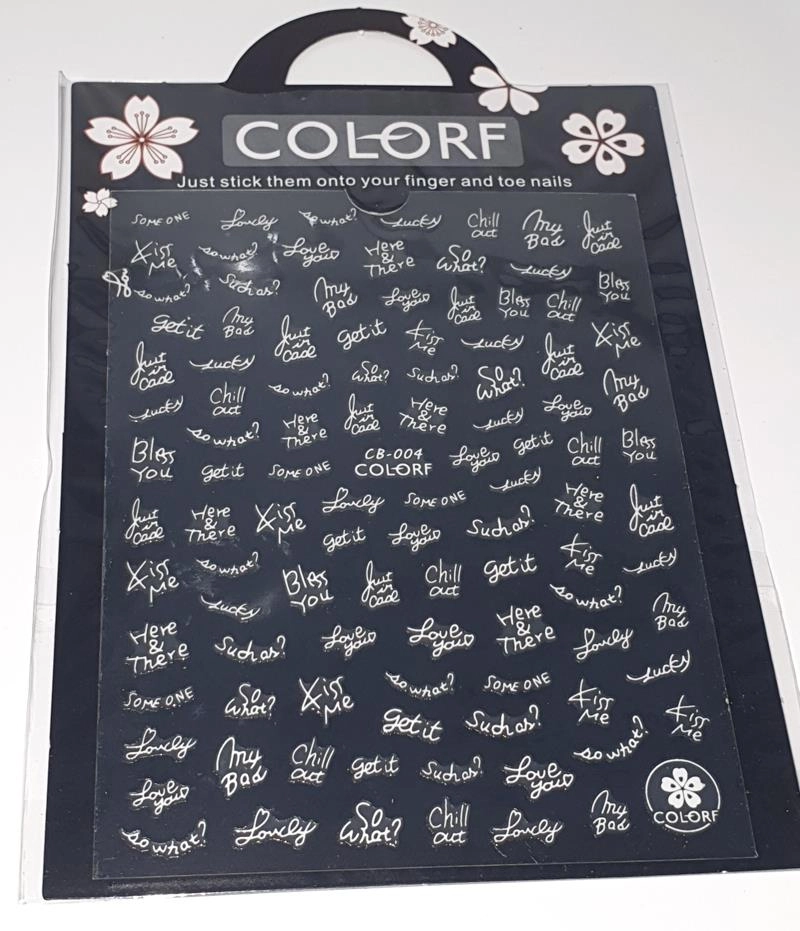 COLORF
Just stick them onto your finger and toe nails
SOME ONE Lovely so what? Lucky Chill out My Bad Just in Case
Kiss Me so what? Love you Here & There So What? Lucky
so what? Such as? My Bad Love you Just in Case Bless You Chill out Bless You
get it My Bad Just in Case get it Kiss Me Lucky Just in Case Kiss Me
Just in Case Lucky so what? So What? Such as? So What? My Bad
Lucky Chill out so what? Here & There Just in Case Here & There Lucky Love you
Bless You get it SOME ONE CB-004 COLORF Love you get it Chill out Bless You
Just in Case Here & There Kiss Me Lovely SOME ONE Lucky Here & There Just in Case
get it Love you Such as?
Kiss Me so what? Bless You Just in Case Chill out get it Kiss Me Lucky
Lucky so what? My Bad
Here & There Such as? Love you Love you Here & There Lovely Lucky
SOME ONE So What? Kiss Me so what? SOME ONE Kiss Me Kiss Me
get it Such as? so what?
Lovely My Bad Chill out get it Such as? Love you
Love you COLORF
so what? Lovely So What? Chill out Lovely My Bad